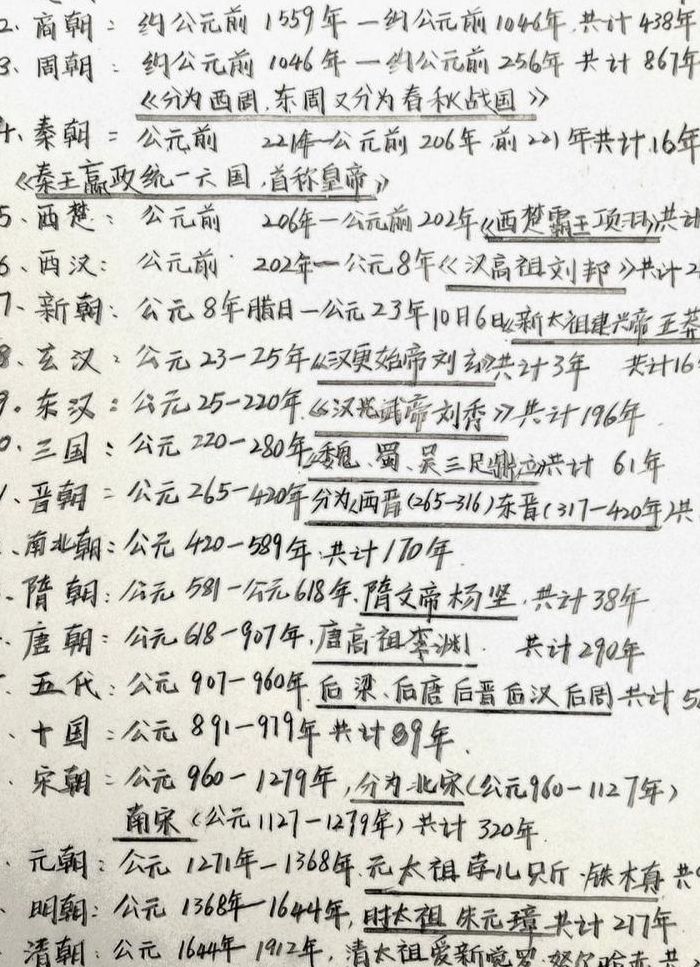 2、商朝：约公元前1559年—约公元前1046年.共计438年
3、周朝：约公元前1046年—约公元前256年 共计867年
《分为西周,东周又分为春秋战国》
秦朝：公元前 221年—公元前206年,前221年共计16年
《秦王嬴政统一六国,首称皇帝》
5、西楚：公元前 206年—公元前202年《西楚霸王项羽》共计
6、西汉：公元前 202年—公元8年《汉高祖刘邦》共计2
7、新朝：公元8年腊日—公元23年10月6日《新太祖建兴帝王莽
8、玄汉：公元23—25年《汉更始帝刘玄》共计3年 共计16
9.东汉：公元25—220年.《汉光武帝刘秀》共计196年.
0、三国：公元220—280年《魏、蜀、吴三足鼎立》共计 61年
、晋朝：公元265—420年分为《西晋(265-316)东晋(317—420年)共
、南北朝：公元420—589年.共计170年.
、隋朝：公元581—公元618年.隋文帝杨坚.共计38年
唐朝：公元618—907年,唐高祖李渊. 共计290年
五代：公元907—960年后梁、后唐后晋后汉后周共计5
、十国：公元891—979年共计89年.
宋朝：公元960—1279年,分为北宋(公元960—1127年)
南宋(公元1127—1279年)共计320年.
元朝：公元1271年—1368年.元太祖孛儿只斤·铁木真共
明朝：公元1368年—1644年,明太祖朱元璋共计277年
清朝：公元1644年1912年,清太祖爱新觉罗·努尔哈赤共